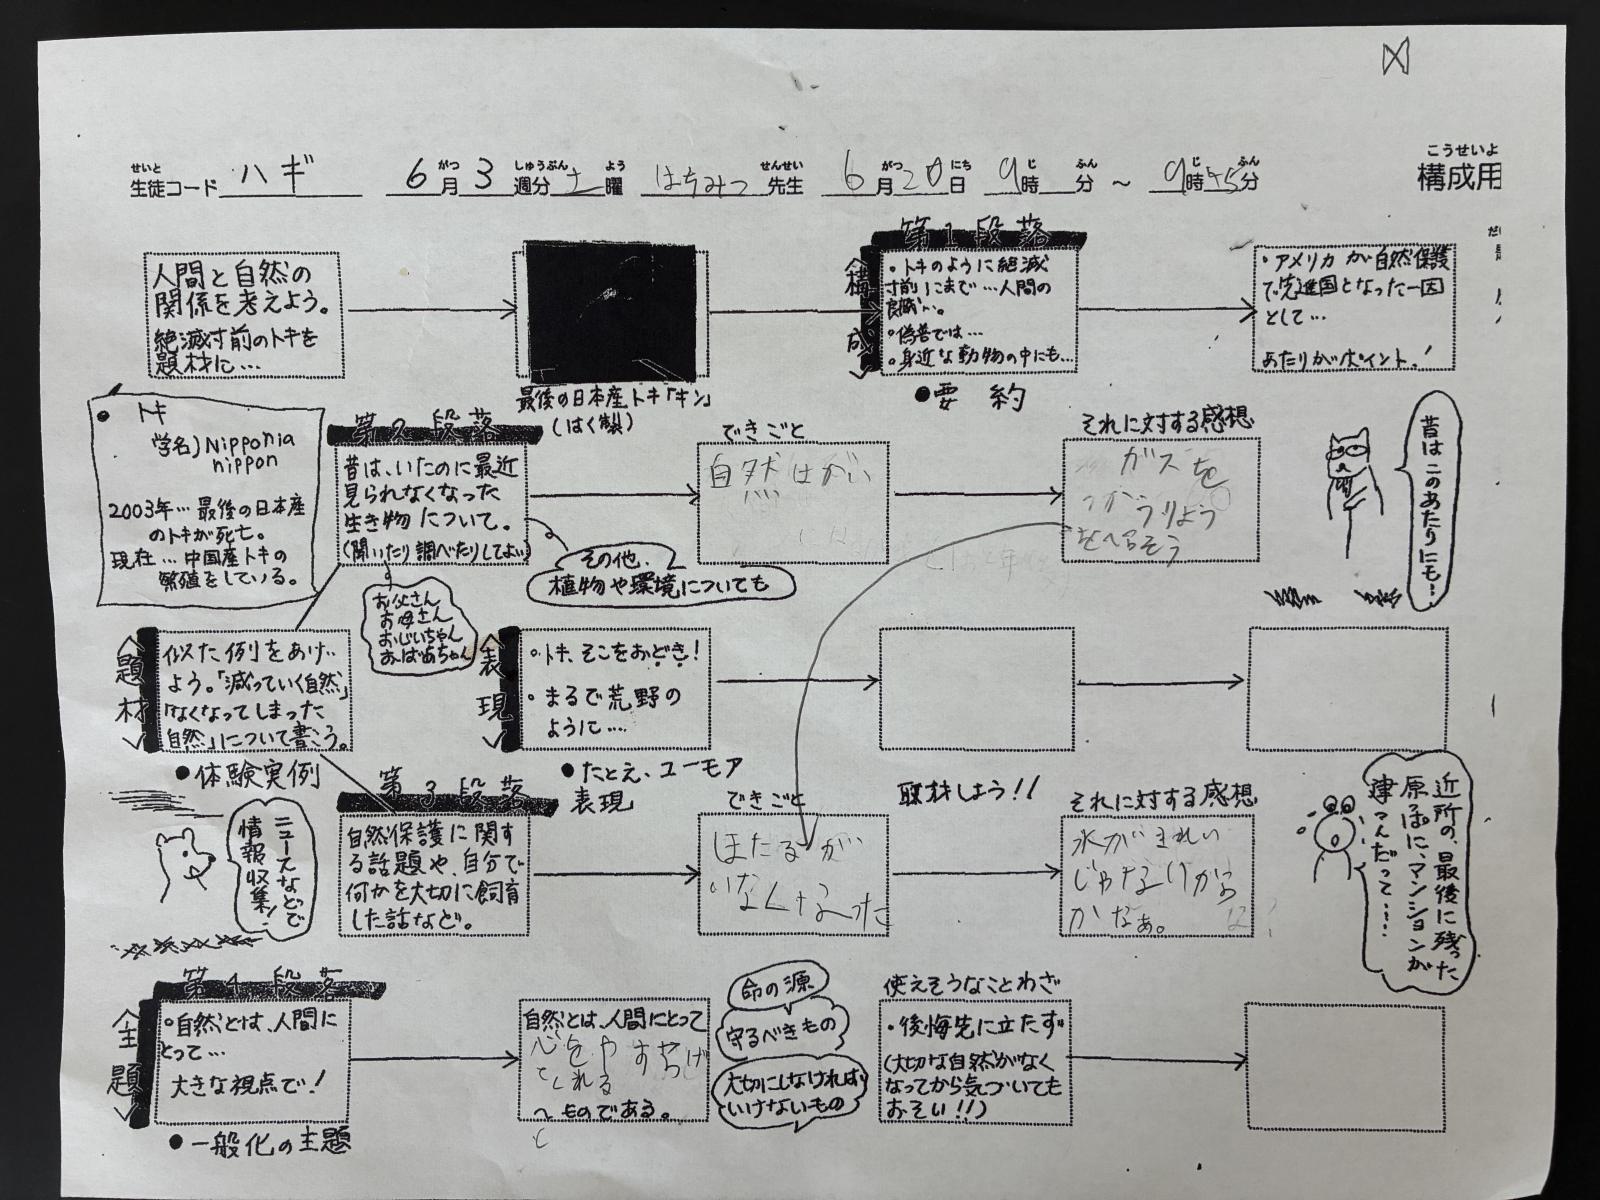 せいと
生徒コード ハギ
6月3週分土曜
がつ しゅうぶん よう
はちみつ先生
せんせい
6月20日9時 分～9時45分
がつ にち じ ふん じ ふん
こうせいよ
構成用
人間と自然の
関係を考えよう。
絶滅寸前のトキを
題材に…
最後の日本産トキ「キン」
(はく製)
第1段落
<構成>
・トキのように絶滅
寸前にまで…人間の
良識…。
・偽善では…
・身近な動物の中にも…
●要約
・アメリカが自然保護
で先進国となった一因
として…
あたりがポイント!
トキ
学名)Nipponia
nippon
2003年…最後の日本産
のトキが死亡。
現在…中国産トキの
繁殖をしている。
第2段落
昔は、いたのに最近
見られなくなった
生き物について。
(聞いたり調べたりしてよい)
その他、
植物や環境についても
お父さん
お母さん
おじいちゃん
おばあちゃん
できごと
自然はがい
それに対する感想
ガスを
つかうりよう
をへらそう
昔はこのあたりにも…
<題材>
似た例をあげ
よう。「減っていく自然」
「なくなってしまった
自然」について書こう。
●体験実例
<表現>
・トキ、そこをおどき!
・まるで荒野の
ように…
●たとえ、ユーモア
表現
ニュースなどで
情報収集!
第3段落
自然保護に関す
る話題や、自分で
何かを大切に飼育
した話など。
できごと
ほたるが
いなくなった
取材しよう!!
それに対する感想
水がきれい
じゃないから
かなぁ。
近所の、最後に残った
原っぱに、マンションが
建つんだって……
第4段落
<主題>
・自然とは、人間に
とって…
大きな視点で!
●一般化の主題
自然とは、人間にとって
心をやすらげ
てくれる
～ものである。
命の源
守るべきもの
大切にしなければ
いけないもの
使えそうなことわざ
・後悔先に立たず
(大切な自然がなく
なってから気づいても
おそい!!)